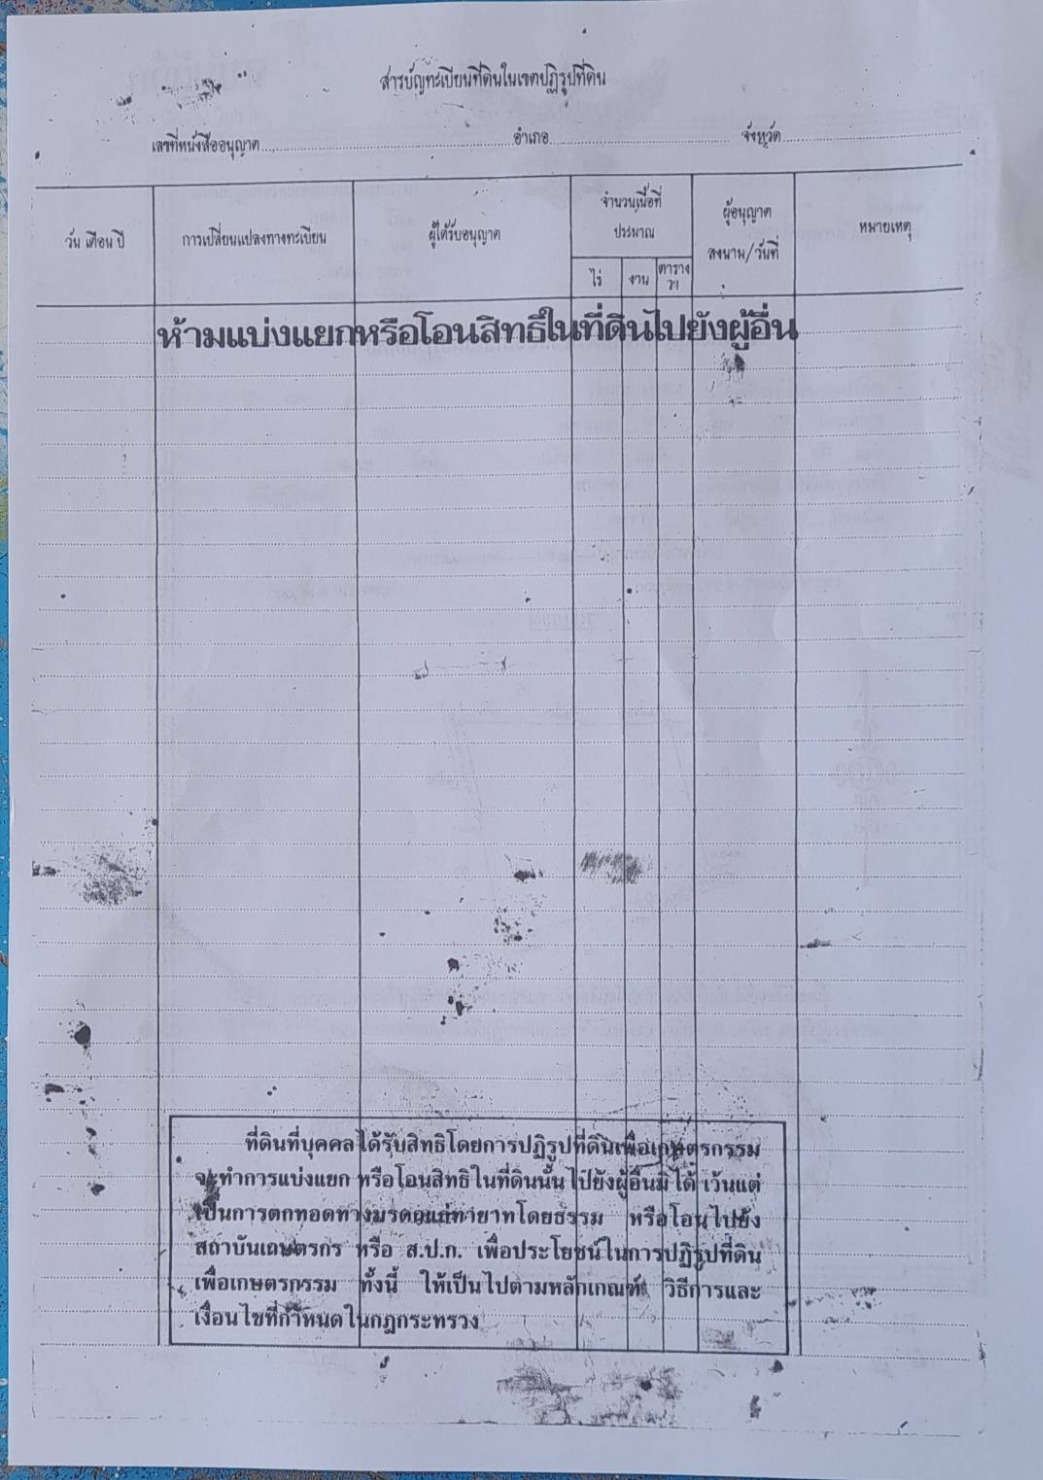 สารบัญทะเบียนที่ดินในเขตปฏิรูปที่ดิน
เลขที่หนังสืออนุญาต อำเภอ จังหวัด
วัน เดือน ปี การเปลี่ยนแปลงทางทะเบียน ผู้ได้รับอนุญาต จำนวนเนื้อที่ประมาณ ไร่ งาน ตารางวา ผู้อนุญาต ลงนาม/วันที่ หมายเหตุ
ห้ามแบ่งแยกหรือโอนสิทธิในที่ดินไปยังผู้อื่น
ที่ดินที่บุคคลได้รับสิทธิโดยการปฏิรูปที่ดินเพื่อเกษตรกรรม
จะทำการแบ่งแยก หรือโอนสิทธิในที่ดินนั้นไปยังผู้อื่นมิได้ เว้นแต่
เป็นการตกทอดทางมรดกแก่ทายาทโดยธรรม หรือโอนไปยัง
สถาบันเกษตรกร หรือ ส.ป.ก. เพื่อประโยชน์ในการปฏิรูปที่ดิน
เพื่อเกษตรกรรม ทั้งนี้ ให้เป็นไปตามหลักเกณฑ์ วิธีการและ
เงื่อนไขที่กำหนดในกฎกระทรวง